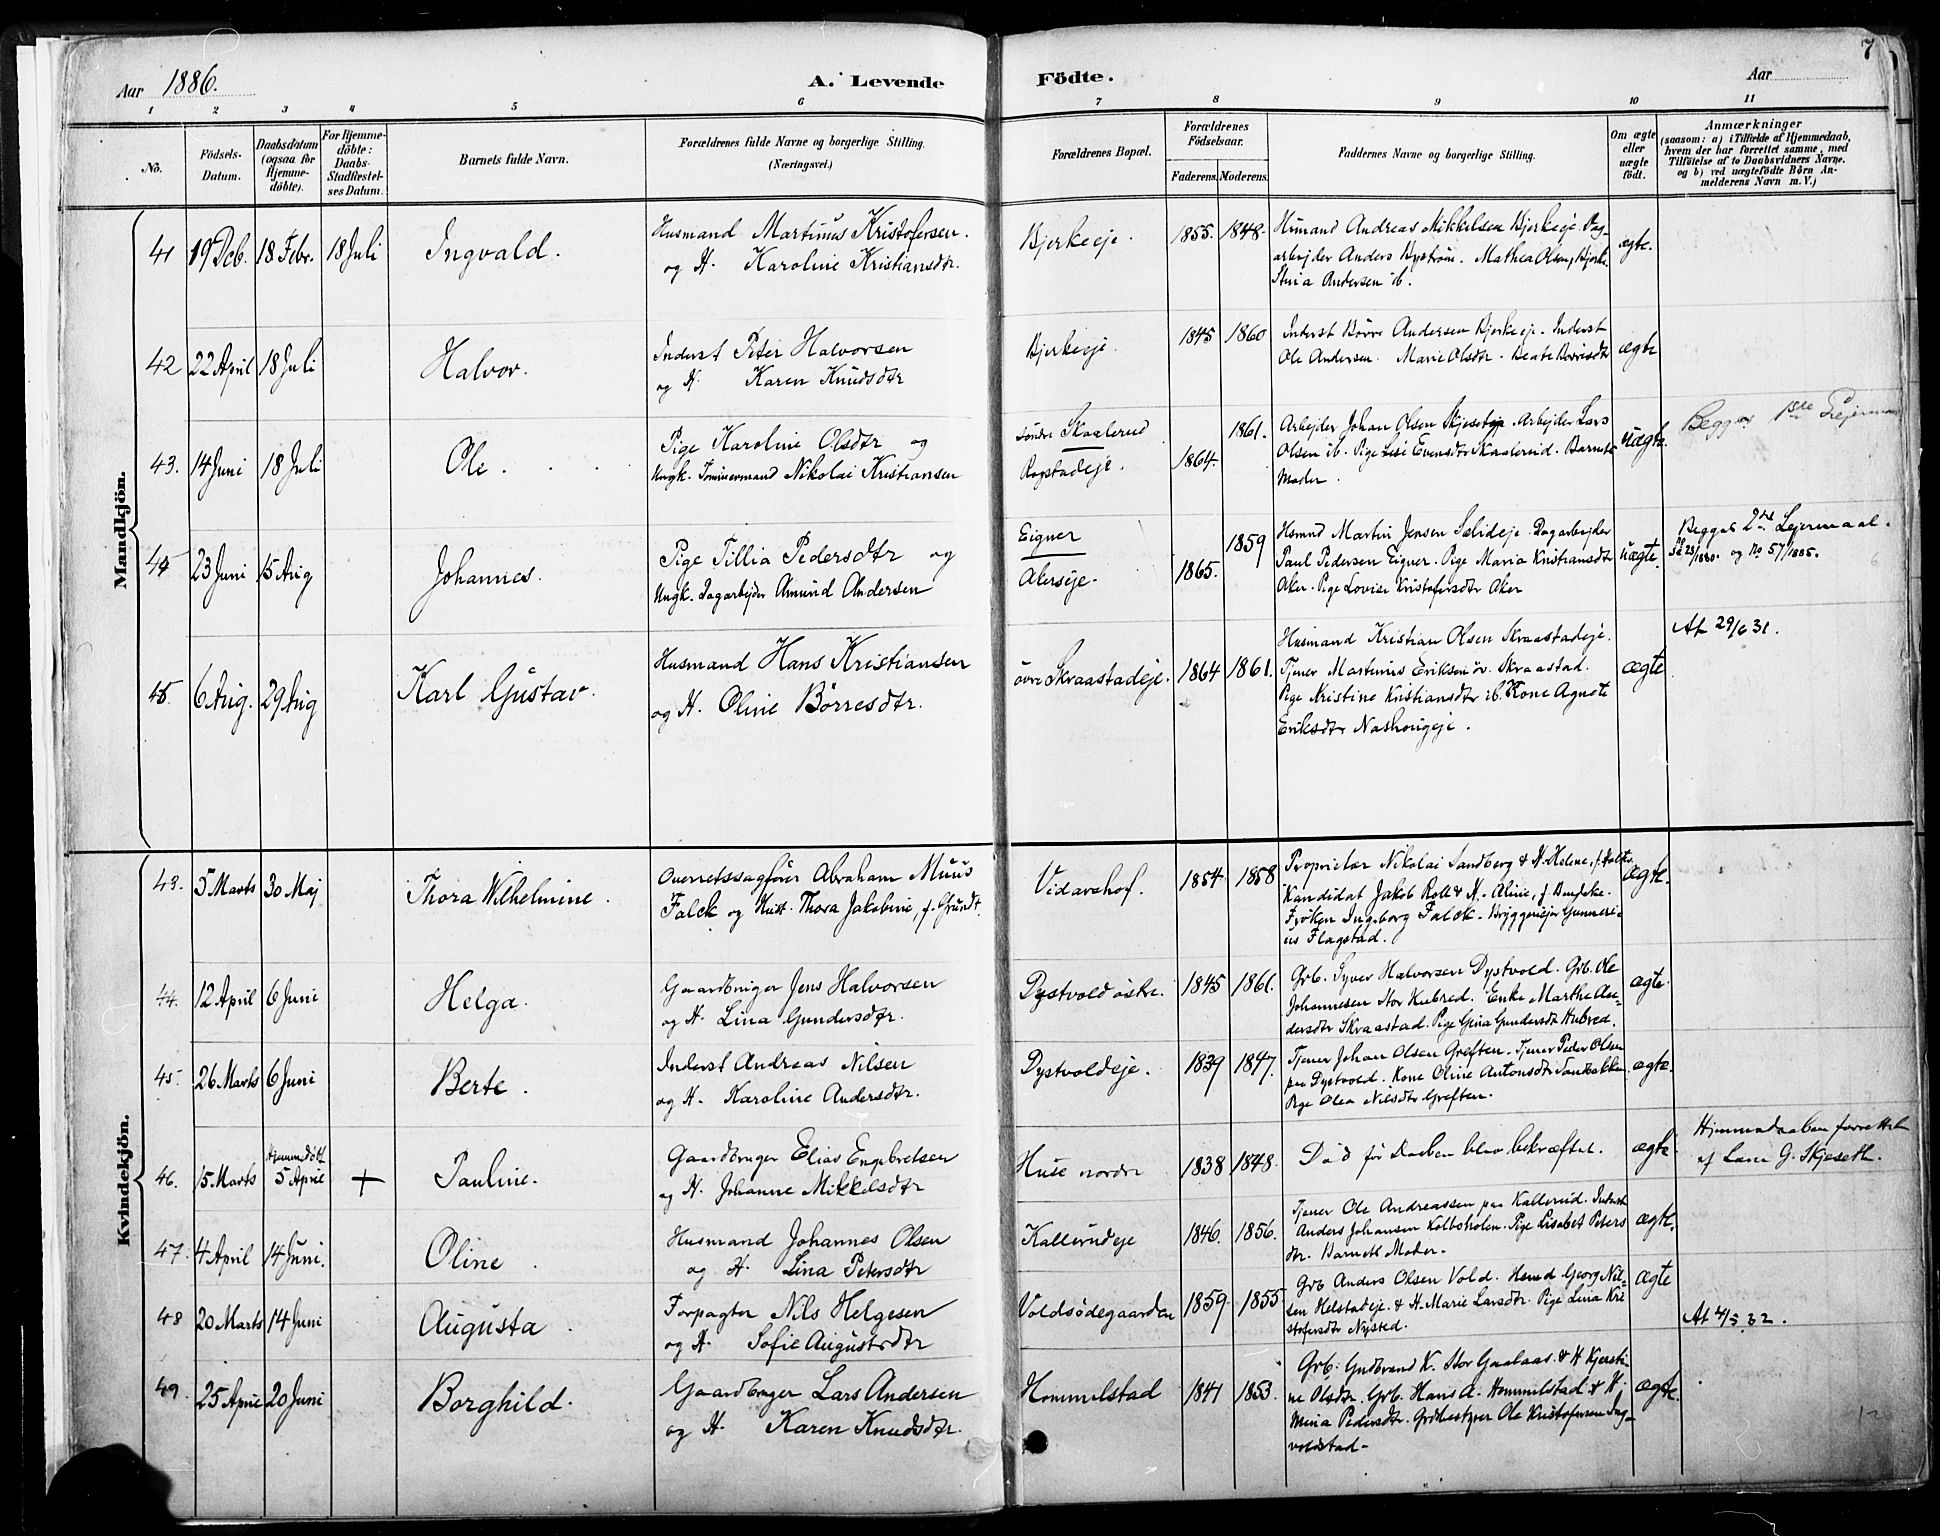 7
Aar 1886.
A. Levende
Födte.
Aar
1 2 3 4 5 6 7 8 9 10 11
No.
Födsels-
Datum.
Daabsdatum
(ogsaa før
Hjemme-
döbte).
For Hjemme-
döbte:
Daabs-
Stadfæstel-
ses Datum.
Barnets fulde Navn.
Forældrenes fulde Navne og borgerlige Stilling.
(Næringsvei.)
Forældrenes Bopæl.
Forældrenes
Födselsaar.
Faderens.
Moderens.
Faddernes Navne og borgerlige Stilling.
Om ægte
eller
uægte
födt.
Anmærkninger
(saasom: a) i Tilfælde af Hjemmedaab,
hvem der har forrettet samme, med
Tilföielse af to Daabsvidners Navne.
og b) ved uægtefödte Börn An-
melderens Navn m. V.)
Mandkjön.
41 19 Dcb. 18 Febr. 18 Juli Ingvald.
Husmand Martinus Kristofersen.
og H. Karoline Kristiansdtr.
Bjerkeeje. 1855. 1848.
Husmand Andreas Mikkelsen Bjerkeeje. Dag-
arbejder Anders Byström. Mathea Olsen, Bjerke.
Stina Andersen ib.
ægte.
42 22 April 18 Juli Halvor.
Inderst Peter Halvorsen
og H. Karen Knudsdtr
Bjerkeeje. 1845 1860
Inderst Börre Andersen Bjerkeeje. Inderst
Ole Andersen. Marie Olsdtr. Beate Börresdtr
ægte
43. 14 Juni 18 Juli Ole.
Pige Karoline Olsdtr og
Ungk. Tömmermand Nikolai Kristiansen
söndre Skaalerud
Rogstadeje.
1864. 1861.
Arbejder Johan Olsen Skjeseteje. Arbejder Lars
Olsen ib. Pige Lise Evensdtr Skaalerud. Barnets
Moder.
uægte.
Begges 1ste Lejerm
44 23 Juni 15 Aug Johannes.
Pige Tillia Pedersdtr og
Ungk. Dagarbejder Amund Andersen
Eigner
Akerseje.
1865. 1859
Husmd Martin Jensen Sælideje. Dagarbejder
Paul Pedersen Eigner. Pige Maria Kristiansdtr
Aker. Pige Lovise Kristofersdtr Aker
uægte.
Begges 2det Lejermaal.
23/1880. og No 57/1885.
45. 6 Aug. 29 Aug Karl Gustav.
Husmand Hans Kristiansen
og H. Oline Börresdtr.
övre Skraastadeje. 1864 1861.
Husmand Kristian Olsen Skraastadeje.
Tjener Martinus Eriksen öv. Skraastad.
Pige Kristine Kristiansdtr ib. Kone Agnete
Eriksdtr Nashougeje.
ægte
At 29/6 31.
Kvindekjön.
43. 5 Marts 30 Maj Thora Wilhelmine.
Overretssagförer Abraham Muus
Falck og Hust. Thora Jakobine, f. Grundt.
Vidarshof. 1854. 1858
Proprietær Nikolai Sandberg & H. Helene, f.
Kandidat Jakob Roll & H. Aline, f.
Fröken Ingeborg Falck. Bryggeriejer Gunneri-
us Flagstad.
ægte.
44. 12 April 6 Juni Helga.
Gaardbruger Jens Halvorsen
og H. Lina Gundersdtr.
Dystvold östre. 1845 1861.
Grb. Syver Halvorsen Dystvold. Grb. Ole
Johannesen Stor Hubred. Enke Marthe An-
dersdtr Skraastad. Pige Gina Gundersdtr Hubred.
ægte.
45. 26 Marts 6 Juni Berte.
Inderst Andreas Nilsen
og H. Karoline Andersdtr.
Dystvoldeje. 1839 1847.
Tjener Johan Olsen Greften. Tjener Peder Olsen
paa Dystvold. Kone Oline Antonsdtr Sandbakken.
Pige Olea Nilsdtr Greften.
ægte.
46. 15 Marts Hjemmedöbt
5 April + Pauline.
Gaardbruger Elias Engebretsen
og H. Johanne Mikkelsdtr
Huse nordre 1838 1848.
Död för Daaben blev bekræftet.
ægte
Hjemmedaaben forrettet
af Lars G. Skjeseth.
47. 4 April 14 Juni. Oline.
Husmand Johannes Olsen
og H. Lina Petersdtr
Kallerudeje 1846. 1856.
Tjener Ole Andreassen paa Kallerud. Inderst
Anders Johansen Kolbsholen. Pige Lisabet Peters
dtr. Barnets Moder.
ægte.
48 20 Marts 14 Juni Augusta.
Forpagter Nils Helgesen
og H. Sofie Augustsdtr
Voldsödegaarden 1859. 1855
Grb Anders Olsen Vold. Husmd Georg Nil-
sen Helstadeje. & H. Marie Larsdtr. Pige Lina Kri
stofersdtr Nysted.
ægte
At 4/5 32.
49. 25 April 20 Juni Borghild.
Gaardbruger Lars Andersen
og H. Karen Knudsdtr.
Hommelstad 1841 1853.
Grb. Gudbrand K. Stor Gaalaas. & H Kjersti-
ne Olsdtr. Grb. Hans A. Hommelstad & H.
Mina Pedersdtr. Grdbestyrer Ole Kristofersen Ing-
voldstad.
ægte.